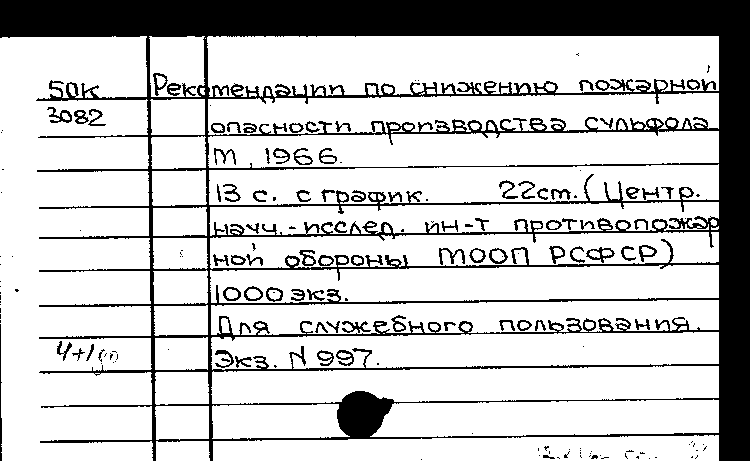 50к Рекомендации по снижению пожарной
3082 опасности производства сульфола
М, 1966.
13 с. с график. 22cm. (Центр.
науч.-исслед. ин-т противопожар
ной обороны МООП РСФСР)
1000 экз.
Для служебного пользования.
4+1 Экз. N 997.